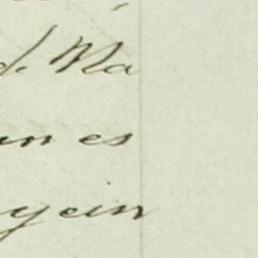 d. Ma
un es
yein